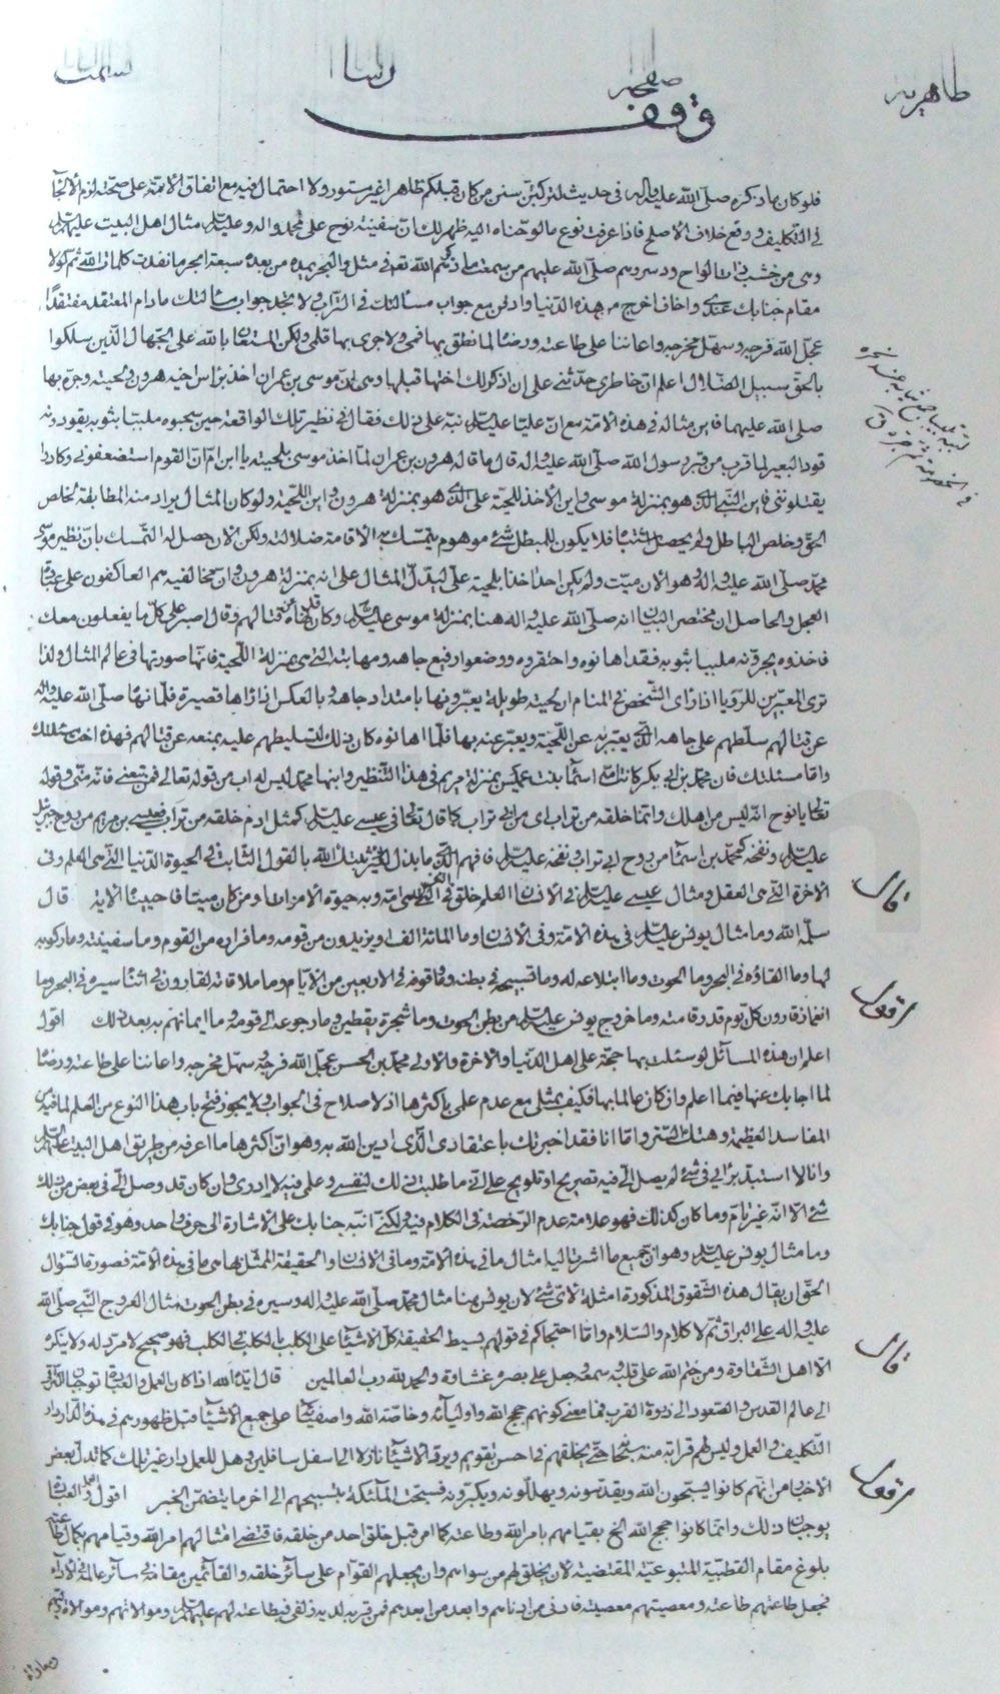 طاهريه
صفحه
رسا
وقف
فلو كان ما ذكره صلّى الله عليه وآله فى حديث لتركبنّ سنن من كان قبلكم ظاهرا غير مستور ولا احتمال فيه مع اتفاق الامّة على صحّته لزم الالجا
فى التكليف ووقع خلاف الاصلح فاذا عرفت نوع ما لوّحناه اليه ظهر لك انّ سفينة نوح على محمد واله وعليه السلم مثال اهل البيت عليهم السلم
وهى من خشب ذات الواح ودسر وهم صلّى الله عليهم من سمعت ما ذكرهم الله تعالى فى مثل والبحر يمدّه من بعده سبعة ابحر ما نفدت كلمات الله ثم لولا
مقام جنابك عندى واخاف اخرج من هذه الدّنيا وادفن مع جواب مسائلك فى التراب ولا تجد جواب مسائلك مادام المعتقد مفتقدًا
عجّل الله فرجه وسهّل مخرجه واعاننا على طاعته ورضاه لما نطق بها فمى ولا جرى بها قلمى ولكن المستعان بالله على الجهّال الّذين سلكوا
بالحق سبيل الضّلال اعلم انّ خاطرى حدّثنى على ان اذكر لك اختها قبلها وهى انّ موسى بن عمران اخذ براس اخيه هرون ولحيته وجرّه بها
صلى الله عليهما فاين مثاله فى هذه الامّة مع انّ عليّا عليه السلم نبّه على ذلك فقال فى نظير تلك الواقعة حين سحبوه ملبّبا بثوبه يقودونه
قود البعير لما قرب من قبر رسول الله صلّى الله عليه واله قال ما قاله هرون بن عمران لما اخذ موسى بلحيته يا ابن امّ انّ القوم استضعفونى وكادوا
يقتلوننى فاين النّبى الّذى هو بمنزلة موسى واين الاخذ للّحية على الّذى هو بمنزلة هرون واين اللّحية ولو كان المثال يراد منه المطابقة لخلص
الحقّ وخلص الباطل ولم يحصل اشتباه فلا يكون للمبطل شئ موهوم يتمسّك به لاقامة ضلالته ولكن الان حصل له التمسك بانّ نظير موسى
محمد صلّى الله عليه واله وهو الان ميّت ولم يكن احد اخذ بلحية علىّ ليدلّ المثال على انه بمنزلة هرون وانّ مخالفيه هم العاكفون على عبادة
العجل والحاصل انّ مختصر البيان انه صلّى الله عليه واله هنا بمنزلة موسى عليه السلم وكان قد نهاه عن قتالهم وقال اصبر على كلّ ما يفعلون معك
فاخذوه يجرّونه ملبّبا بثوبه فقد اهانوه واحتقروه ووضعوا رفيع جاهه ومهابته الّتى هى بمنزلة اللّحية فانّها صورتها فى عالم المثال ولذا
ترى المعبّرين للرّؤيا اذا راى الشّخص فى المنام انّ لحيته طويلة يعبّرونها بامتداد جاهه وبالعكس اذا راها قصيرة فلمّا نهاه صلّى الله عليه واله
عن قتالهم سلّطهم على جاهه الّذى يعبّر به عن اللّحية ويعبّر عنه بها فلمّا اهانوه كان ذلك لتسليطهم عليه بمنعه عن قتالهم فهذه اخت مسئلتك
وامّا مسئلتك فانّ محمد بن ابى بكر كانت امّه اسمآء بنت عميس بمنزلة مريم فى هذا التّنظير وابنها محمد ليس له اب من قوله تعالى فمن تبعنى فانّه منّى وقوله
تعالى يا نوح انّه ليس من اهلك وانّما خلقه من تراب اى من ابى تراب كما قال تعالى فى عيسى عليه السلم كمثل ادم خلقه من تراب فعيسى بن مريم من روح جبرئيل
عليه السلم ونفخه كمحمد بن اسمآء من روح ابى تراب ونفخه عليه السلم فافهم الّذى ما بذل لغيرى ثبّتك الله بالقول الثّابت فى الحيوة الدّنيا الّتى هى العلم وفى
الاخرة الّتى هى العقل ومثال عيسى عليه السلم فى الانسان العلم خلق فى النّفس الّتى هى امّه وبه حيوة الاموات او من كان ميتا فاحييناه الاية قال
سلّمه الله وما مثال يونس عليه السلم فى هذه الامّة وفى الانسان وما المائة الف او يزيدون من قومه وما فراره من القوم وما سفينته وما ركوبه
لها وما القاؤه فى البحر وما الحوت وما ابتلاعه له وما تسبيحه فى بطنه وقوفه فى الاربعين من الايّام وما ملاقاته لقارون فى اثناء سيره فى البحر وما
انغماز قارون كلّ يوم قدر قامته وما خروج يونس عليه السلم من بطن الحوت وما شجرة يقطين وما رجوعه الى قومه وما ايمانهم به بعد ذلك اقول
اعلم انّ هذه المسائل لو سئلت بها حجّة على اهل الدّنيا والاخرة والاولى محمد بن الحسن عجّل الله فرجه وسهّل مخرجه واعاننا على طاعته ورضاه
لما اجابك عنها فيما اعلم وان كان عالما بها فكيف بمثلى مع عدم علمى باكثرها اذ لا صلاح فى الجواب ولا يجوز فتح باب هذا النّوع من العلم لما فيه من
المفاسد العظيمة وهتك السّتر وامّا انا فقد اخبرتك باعتقادى الّذى ادين الله به وهو انّ اكثرها ما اعرفه من طريق اهل البيت عليهم السلم
وانا لا استبدّ برايى فى شئ لم يصل الىّ فيه تصريح او تلويح على انّى ما طلبت ذلك لنفسى وعلمى فيه لا ادرى وان كان قد وصل الىّ فى بعض من ذلك
شئ الاّ انّه غير تامّ وما كان كذلك فهو علامة عدم الرّخصة فى الكلام فيه ولكنّى انبّه جنابك على الاشارة الى حرف واحد وهو فى قول جنابك
وما مثال يونس عليه السلم وهو انّ جميع ما اشرنا اليه امثال ما فى هذه الامّة وما فى الانسان والحقيقة الممثّل لها هى ما فى هذه الامّة فصورة السّؤال
الحقّ ان يقال هذه الشّقوق المذكورة امثلة لاىّ شئ لانّ يونس هنا مثال محمّد صلّى الله عليه واله وسيره فى بطن الحوت مثال العروج النّبى صلّى الله
عليه واله على البراق ثم لا كلام والسّلام وامّا احتجاجكم فى قولهم بسيط الحقيقة كلّ الاشيآء على الكلب بالكلب فى الكلب فهو صحيح لا مردّ له ولا ينكره
الاّ اهل الشّقاوة ومن ختم الله على قلبه وسمعه وجعل على بصره غشاوة والحمد لله ربّ العالمين قال ايّده الله اذا كان العمل والعبادة توجبان التّرقّى
الى عالم القدس والصّعود الى ذروة القرب فما معنى كونهم حجج الله واوليآئه وخاصّة الله واصفيائه على جميع الاشيآء قبل ظهورهم فى هذه الدّار دار
التكليف والعمل وليس لهم قرابة منه سبحانه حتّى يخلقهم فى احسن تقويم ويردّ الاشيآء نازلة الى اسفل سافلين وهل للعمل دار غير تلك كما تدلّ بعض
الاخبار من انّهم كانوا يسبّحون الله ويقدّسونه ويهلّلونه ويكبّرونه فسبّحت الملئكة بتسبيحهم الى اخر ما يتضمّن الخبر اقول العمل والعبادة
يوجبان ذلك وانّما كانوا حجج الله الخ بقيامهم بامر الله وطاعته كما امر قبل خلق احد من خلقه فاقتضى امتثالهم امر الله وقيامهم بكمال طاعته
بلوغ مقام القطبيّة المتبوعيّة المقتضية لان يخلق لهم من سواهم وان يجعلهم القوّام على سآئر خلقه والقآئمين مقامه فى سآئر عالمه فى الادآء
فجعل طاعتهم طاعته ومعصيتهم معصيته فادنى من ادناهم وابعد من ابعدهم فمن قربه لديه زلفى فبطاعته لهم عليهم السلم وموالاتهم وموالاة وليّهم
قال
اقول
قال
اقول
ومعاداة